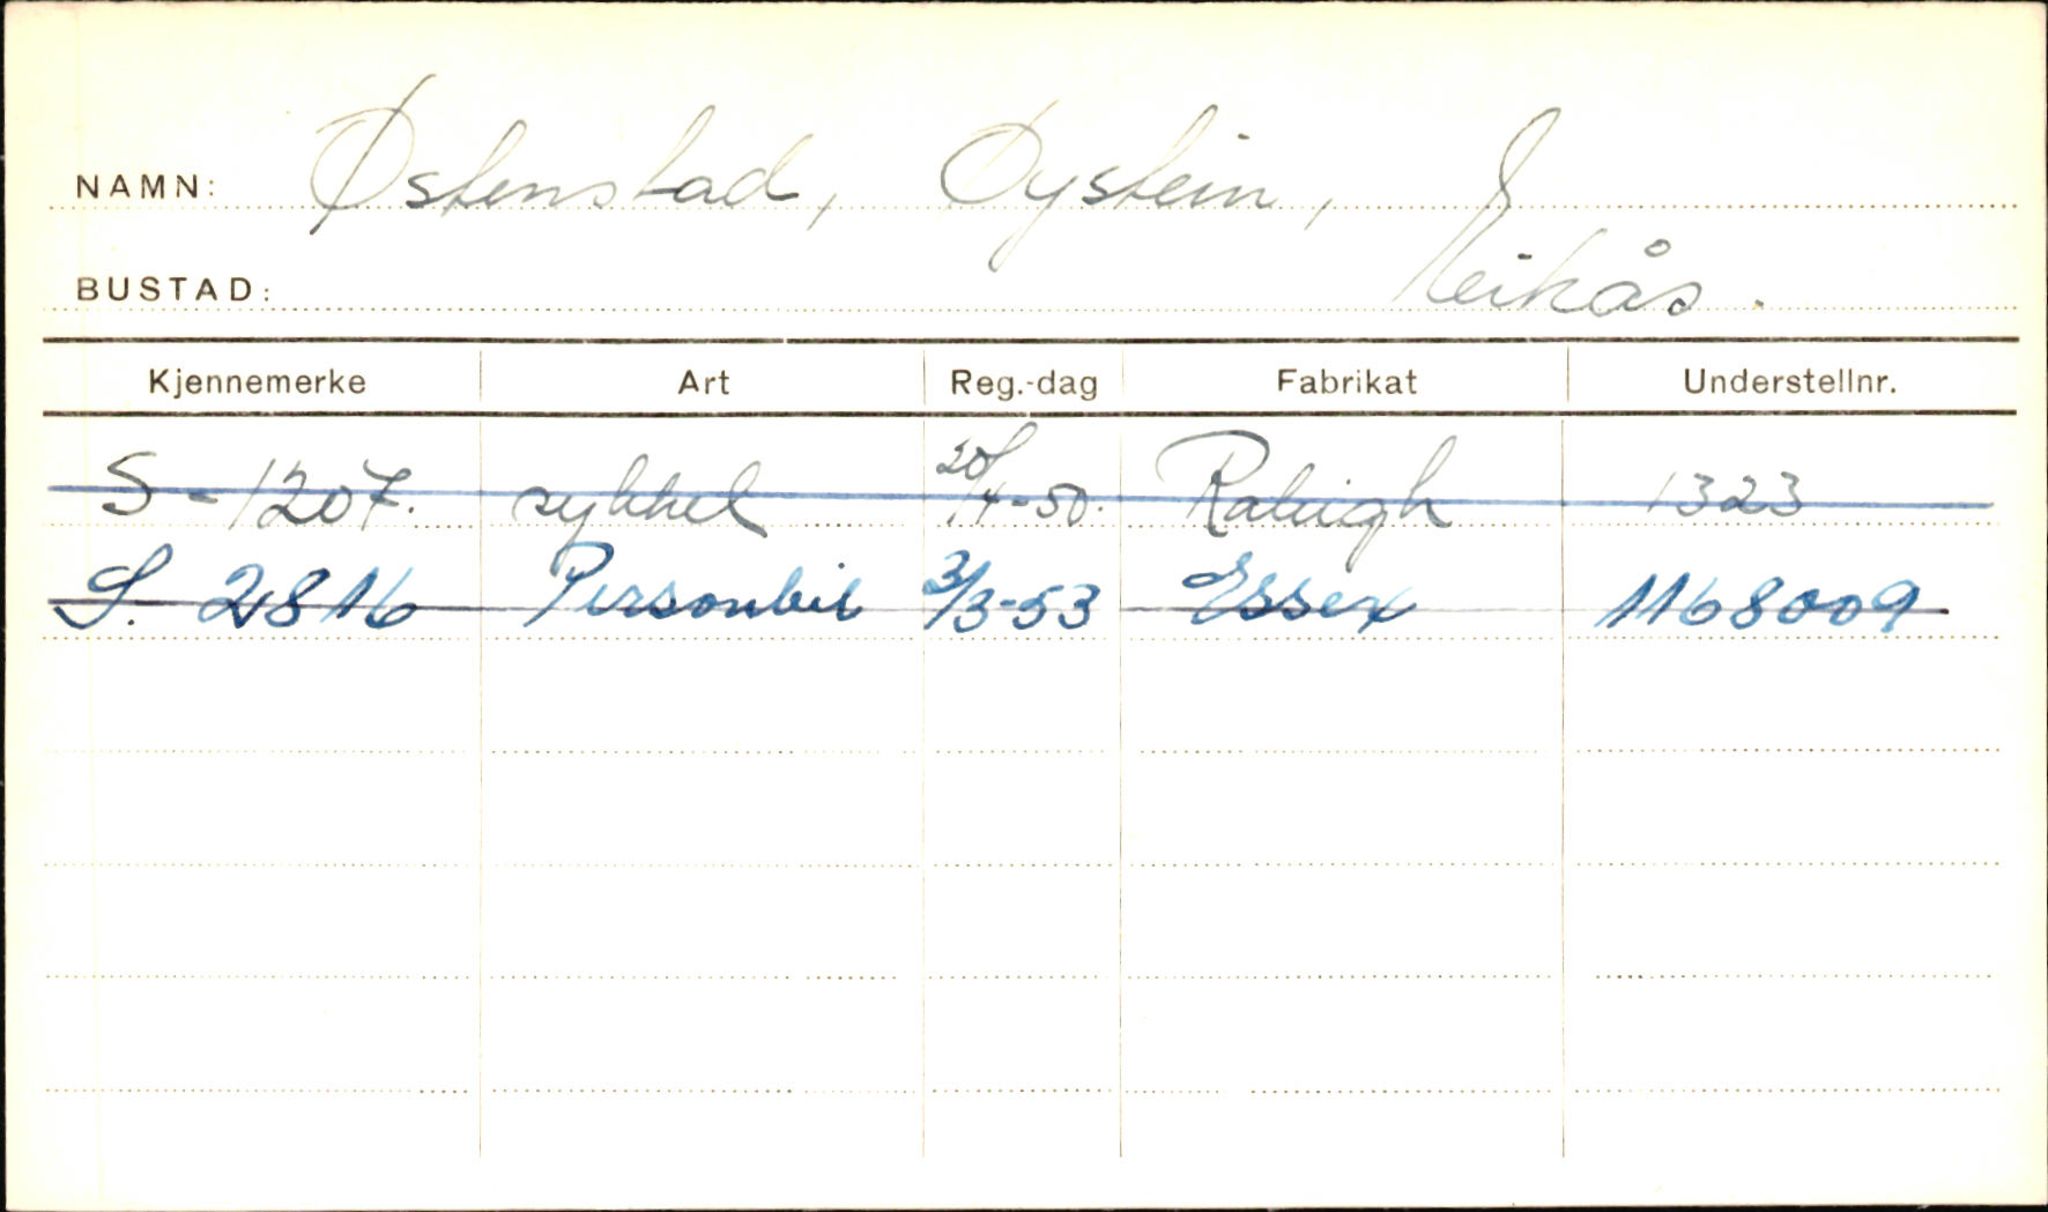 NAMN: Østenstad, Øystein,
BUSTAD: Eikås.
Kjennemerke Art Reg.-dag Fabrikat Understellnr.
S-1207. sykkel 20/4-50. Raleigh 1323
S. 2816 Personbil 3/3-53 Essex 1168009